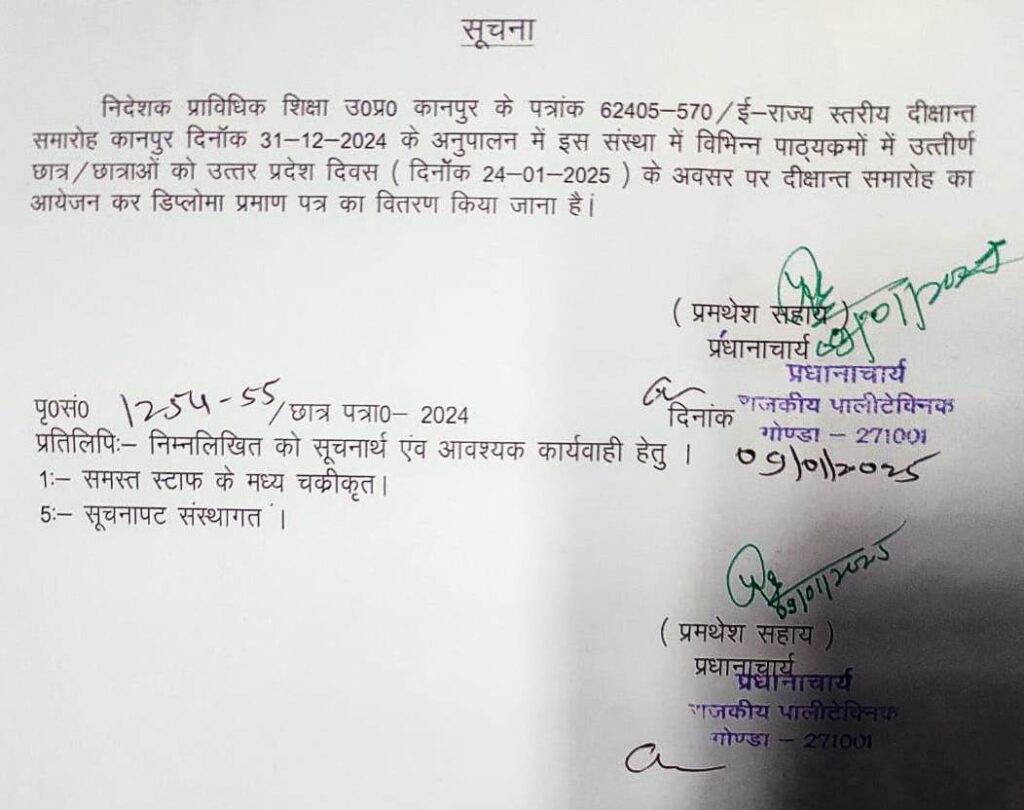 सूचना
निदेशक प्राविधिक शिक्षा उ0प्र0 कानपुर के पत्रांक 62405-570/ई-राज्य स्तरीय दीक्षान्त
समारोह कानपुर दिनॉक 31-12-2024 के अनुपालन में इस संस्था में विभिन्न पाठ्यकमों में उत्तीर्ण
छात्र/छात्राओं को उत्तर प्रदेश दिवस ( दिनॉक 24-01-2025 ) के अवसर पर दीक्षान्त समारोह का
आयेजन कर डिप्लोमा प्रमाण पत्र का वितरण किया जाना है।
( प्रमथेश सहाय )
09/01/2025
प्रधानाचार्य
प्रधानाचार्य
राजकीय पालीटेक्निक
गोण्डा - 271001
पृ0सं0 1254-55/छात्र पत्रा0- 2024
दिनांक
09/01/2025
प्रतिलिपिः- निम्नलिखित को सूचनार्थ एंव आवश्यक कार्यवाही हेतु ।
1:- समस्त स्टाफ के मध्य चकीकृत।
5:- सूचनापट संस्थागत ।
09/01/2025
( प्रमथेश सहाय )
प्रधानाचार्य
प्रधानाचार्य
राजकीय पालीटेक्निक
गोण्डा - 271001